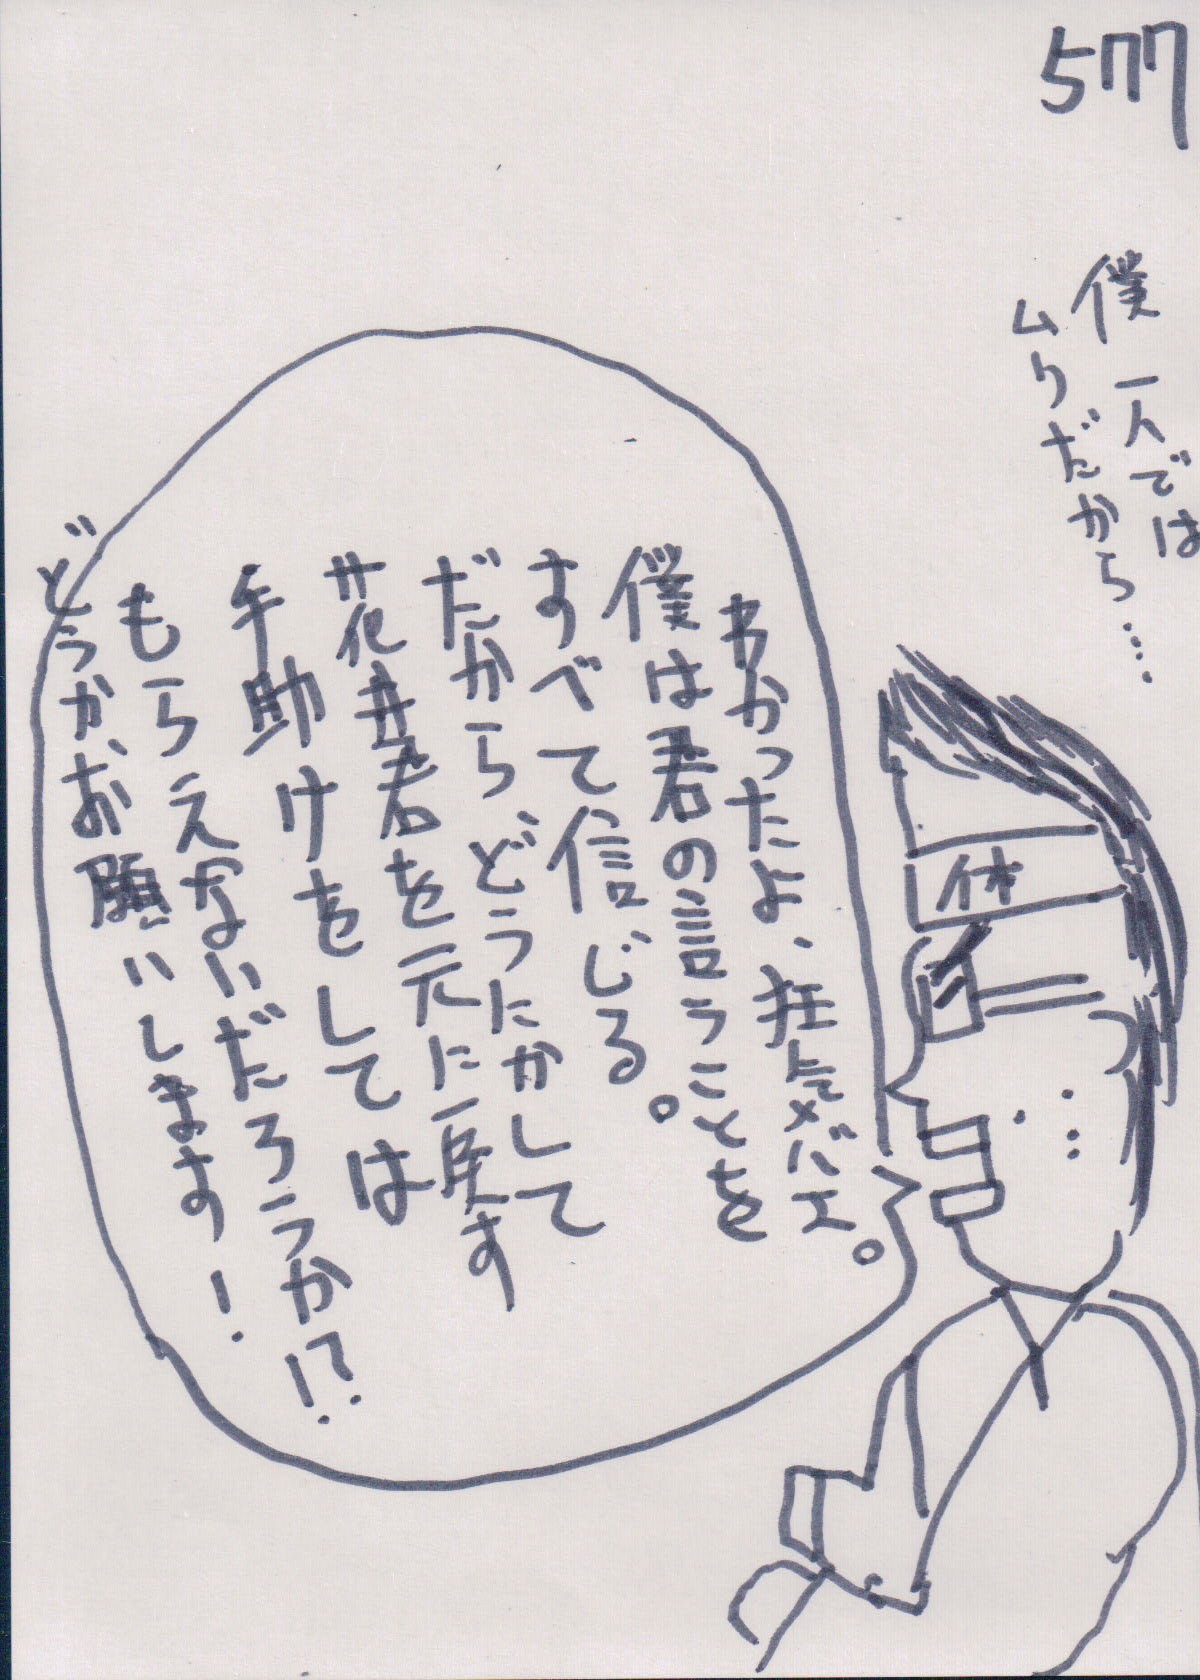 577
僕一人では
ムリだから…
わかったよ、狂気バエ。
僕は君の言うことを
すべて信じる。
だからどうにかして
花井君を元に戻す
手助けをしては
もらえないだろうか!?
どうかお願いします!
休